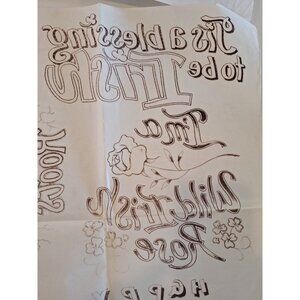 'Tis a blessing
to be
Irish
I'm a
Wild Irish
Rose
HAPP